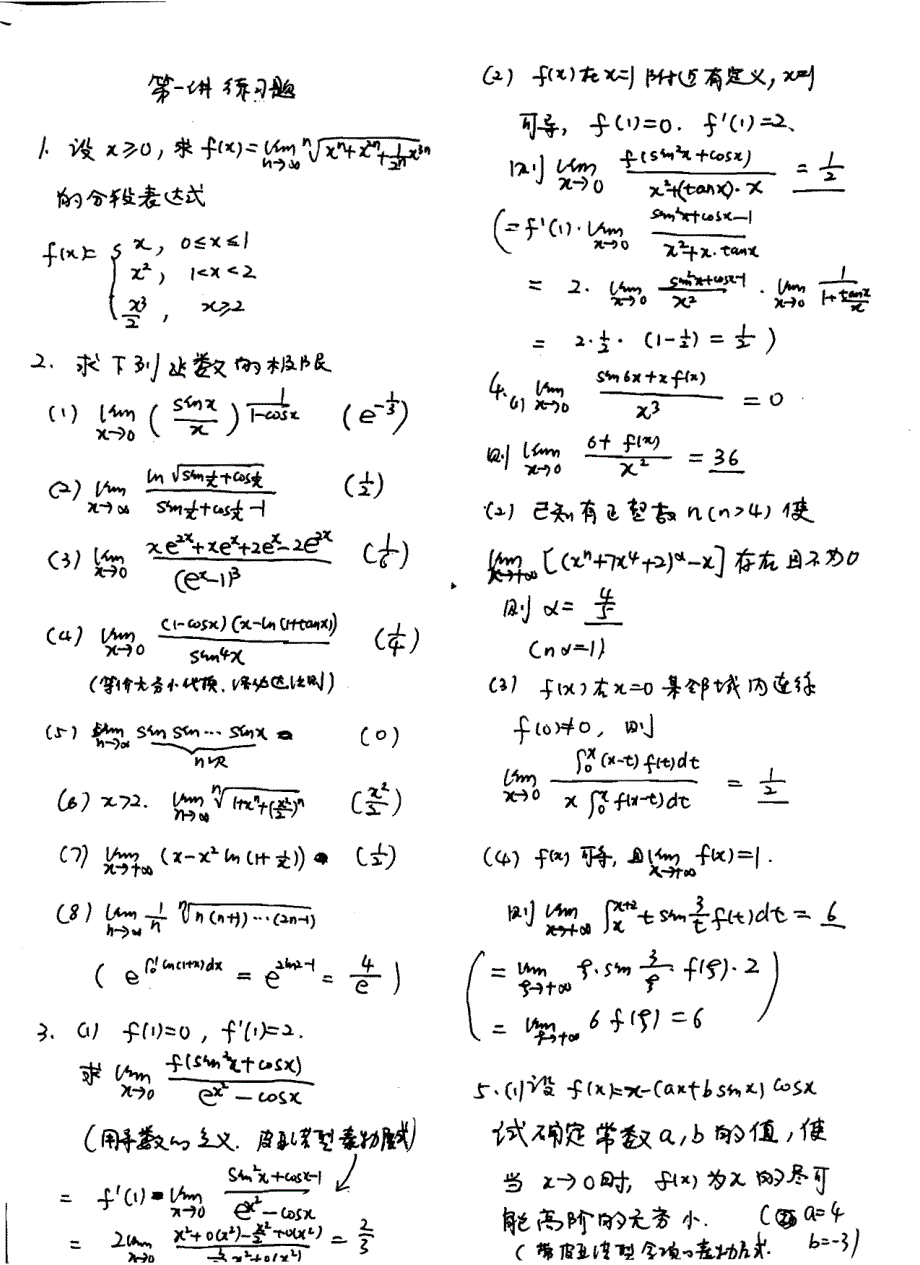 第一讲 练习题
1. 设 x≥0, 求 f(x)=lim_{n→∞} ⁿ√(xⁿ+x²ⁿ+(1/2ⁿ)x³ⁿ)
的分段表达式
f(x)= { x, 0≤x≤1
x², 1<x<2
x³/2, x≥2
2. 求下列函数的极限
(1) lim_{x→0} (sinx/x)^{1/(1-cosx)} (e^{-1/3})
(2) lim_{x→∞} ln√(sin 1/x+cos 1/x) / (sin 1/x+cos 1/x-1) (1/2)
(3) lim_{x→0} (xe^{2x}+xe^x+2e^x-2e^{2x})/(e^x-1)³ (1/6)
(4) lim_{x→0} (1-cosx)(x-ln(1+tanx))/sin⁴x (1/4)
(等价无穷小代换, 洛必达法则)
(5) lim_{n→∞} sin sin⋯sinx (0)
n次
(6) x>2. lim_{n→∞} ⁿ√(1+xⁿ+(x²/2)ⁿ) (x²/2)
(7) lim_{x→+∞} (x-x² ln(1+1/x)) (1/2)
(8) lim_{n→∞} 1/n ⁿ√(n(n+1)⋯(2n-1))
(e^{∫₀¹ ln(1+x)dx} = e^{2ln2-1} = 4/e)
3. (1) f(1)=0, f'(1)=2.
求 lim_{x→0} f(sin²x+cosx)/(e^{x²}-cosx)
(用导数的定义. 皮亚诺型泰勒展式)
= f'(1) lim_{x→0} (sin²x+cosx-1)/(e^{x²}-cosx)
= 2lim_{x→0} (x²+o(x²)-x²/2+o(x²))/(3/2 x²+o(x²)) = 2/3
(2) f(x)在x=1附近有定义, x=1
可导, f(1)=0. f'(1)=2,
则 lim_{x→0} f(sin²x+cosx)/(x²+(tanx)·x) = 1/2
(=f'(1)·lim_{x→0} (sin²x+cosx-1)/(x²+x·tanx)
= 2· lim_{x→0} (sin²x+cosx-1)/x² · lim_{x→0} 1/(1+tanx/x)
= 2·1/2·(1-1/2)=1/2)
4. (1) lim_{x→0} (sin6x+xf(x))/x³ =0
则 lim_{x→0} (6+f(x))/x² = 36
(2) 已知有正整数 n(n>4) 使
lim_{x→+∞} [(xⁿ+7x⁴+2)^α-x] 存在且不为0
则 α= 4/5
(nα=1)
(3) f(x)在x=0某邻域内连续
f(0)≠0, 则
lim_{x→0} ∫₀ˣ(x-t)f(t)dt / (x∫₀ˣf(x-t)dt) = 1/2
(4) f(x)可导, 且 lim_{x→+∞} f(x)=1.
则 lim_{x→+∞} ∫ₓ^{x+2} t sin 3/t f(t)dt = 6
(= lim_{ξ→+∞} ξ·sin 3/ξ · f(ξ)·2
= lim_{ξ→+∞} 6f(ξ)=6)
5. (1) 设 f(x)=x-(ax+bsinx)cosx
试确定常数a,b的值, 使
当 x→0时, f(x)为x的尽可
能高阶的无穷小. (a=4
(带皮亚诺型余项的泰勒展式. b=-3)